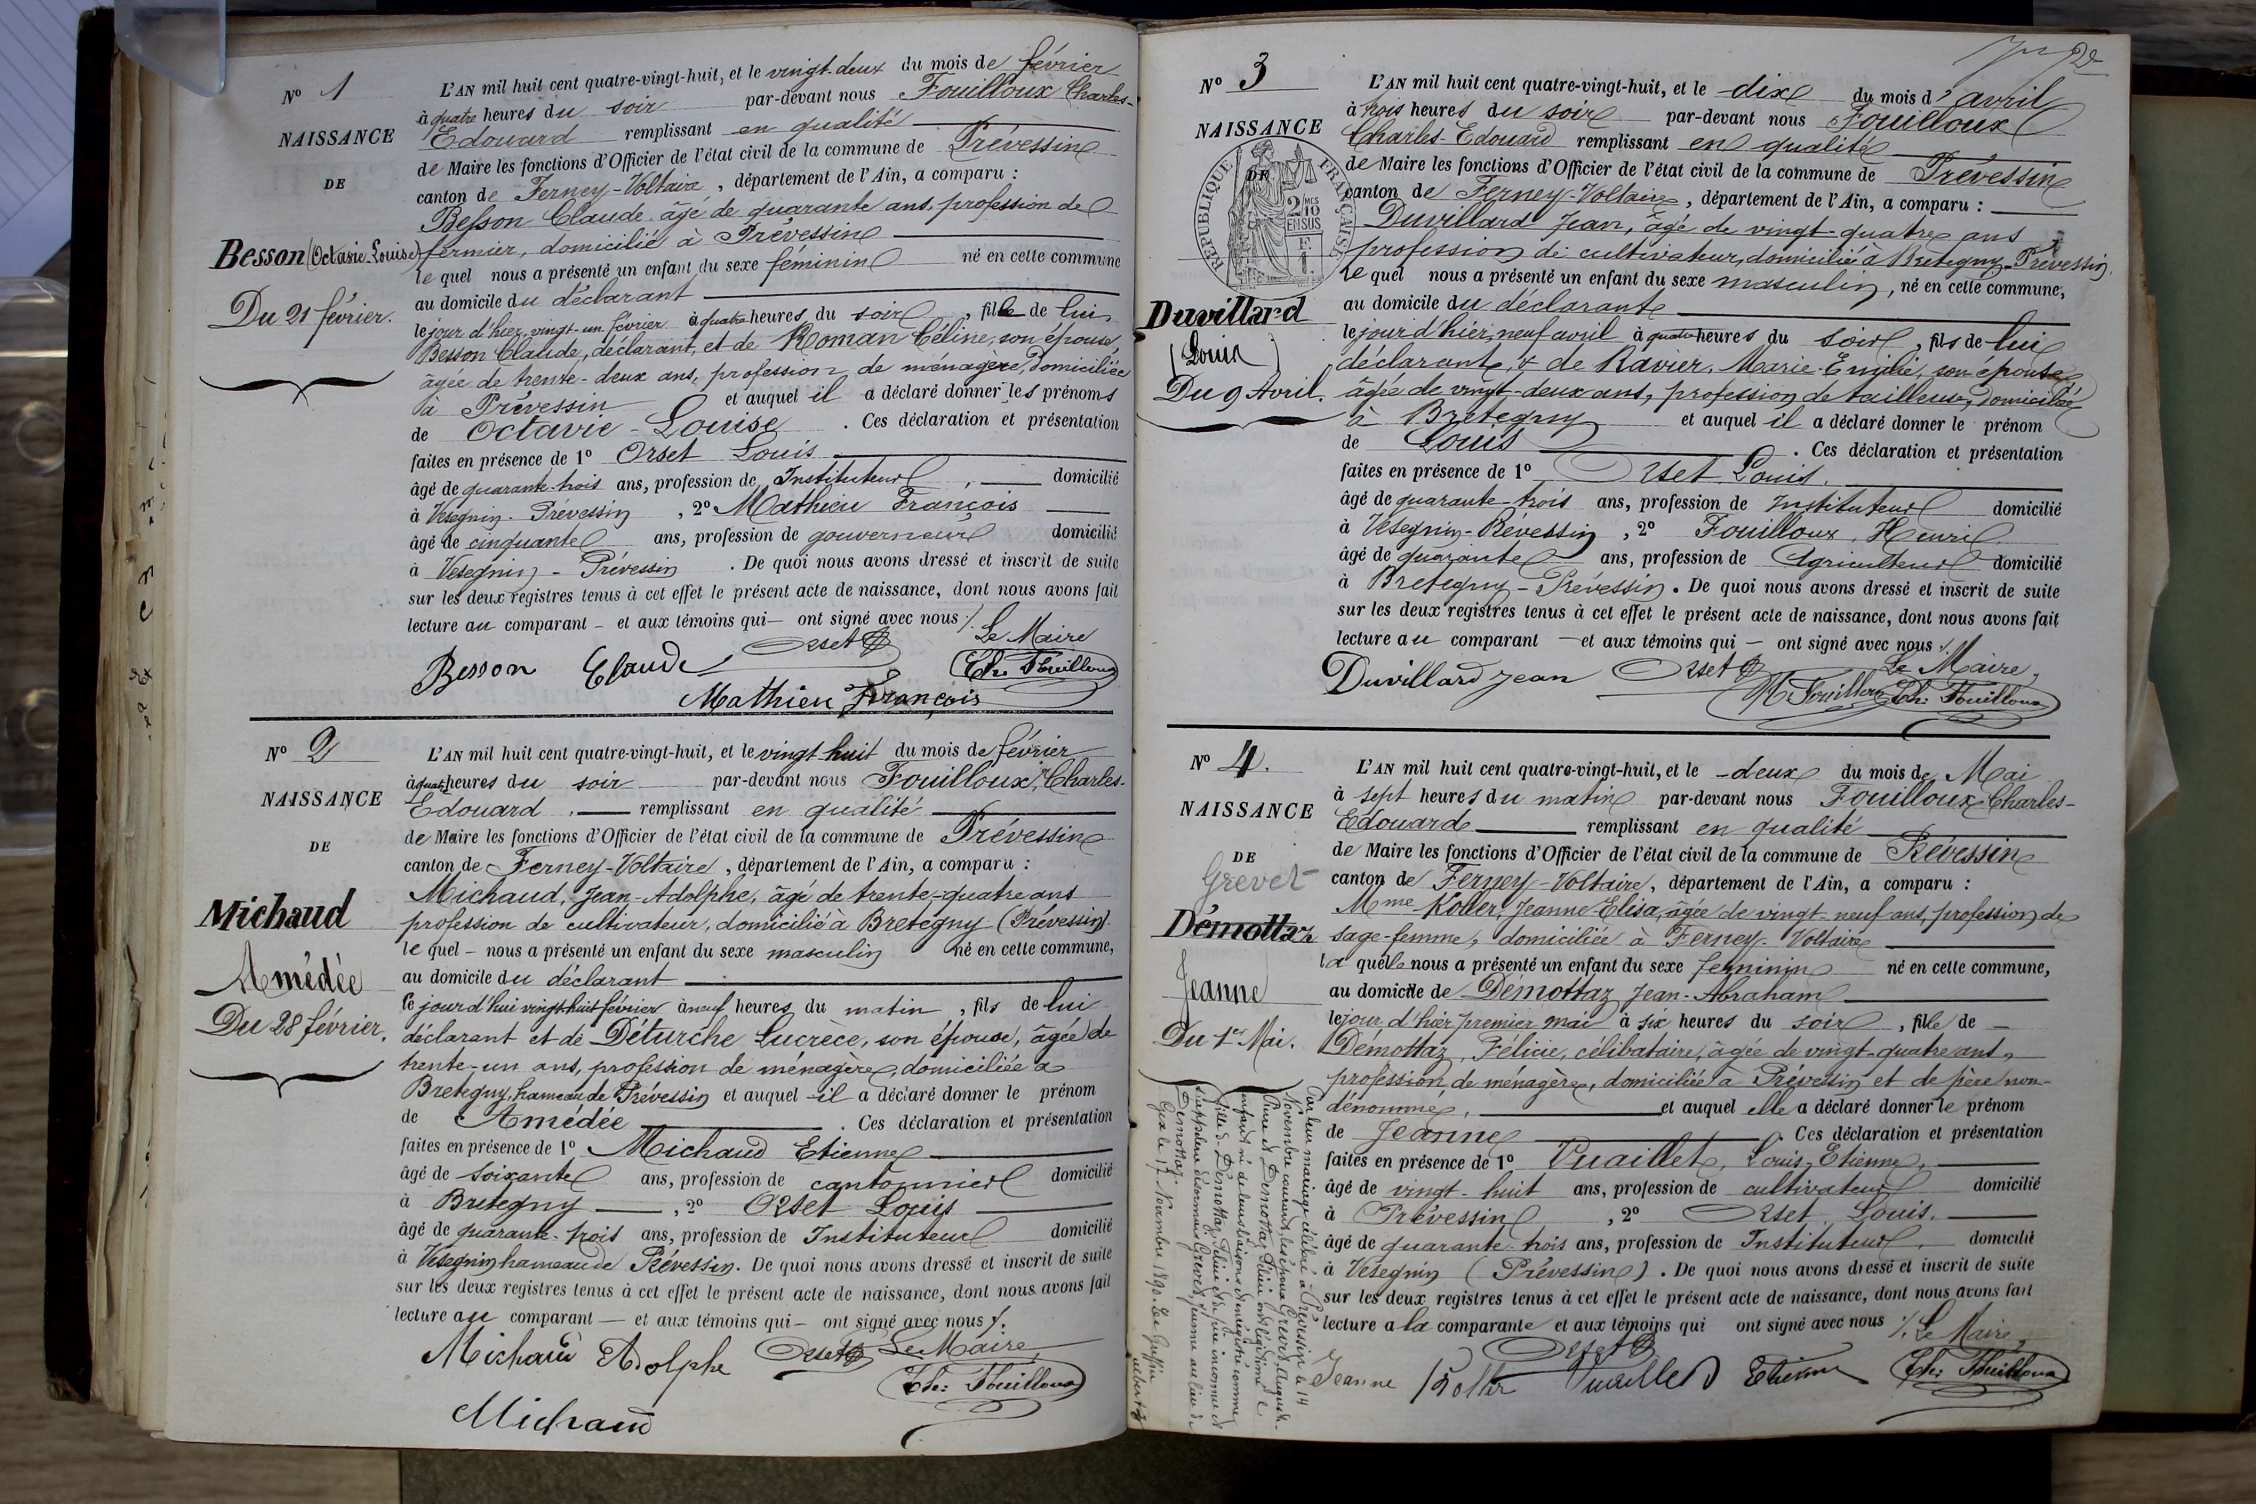 N° 1
NAISSANCE
DE
Besson (Octavie-Louise)
Du 21 février.
L'AN mil huit cent quatre-vingt-huit, et le vingt-deux du mois de février
à quatre heures du soir par-devant nous Fouilloux Charles-
Edouard remplissant en qualité
de Maire les fonctions d'Officier de l'état civil de la commune de Prévessin
canton de Ferney-Voltaire, département de l'Ain, a comparu :
Besson Claude âgé de quarante ans, profession de
fermier, domicilié à Prévessin
le quel nous a présenté un enfant du sexe féminin né en cette commune
au domicile du déclarant
le jour d'hier vingt-un février à quatre heures du soir, fille de lui
Besson Claude, déclarant, et de Roman Céline, son épouse,
âgée de trente-deux ans, profession de ménagère, domiciliée
à Prévessin et auquel il a déclaré donner les prénoms
de Octavie-Louise. Ces déclaration et présentation
faites en présence de 1° Orset Louis
âgé de quarante-trois ans, profession de Instituteur, domicilié
à Vésegnin-Prévessin, 2° Mathieu François
âgé de cinquante ans, profession de gouverneur domicilié
à Vesegnin - Prévessin. De quoi nous avons dressé et inscrit de suite
sur les deux registres tenus à cet effet le présent acte de naissance, dont nous avons fait
lecture au comparant - et aux témoins qui - ont signé avec nous ./.
Orset Le Maire
Besson Claude Ch. Fouilloux
Mathieu François
N° 2
NAISSANCE
DE
Michaud
Amédée
Du 28 février.
L'AN mil huit cent quatre-vingt-huit, et le vingt huit du mois de février
à quatre heures du soir par-devant nous Fouilloux, Charles-
Edouard, remplissant en qualité
de Maire les fonctions d'Officier de l'état civil de la commune de Prévessin
canton de Ferney-Voltaire, département de l'Ain, a comparu :
Michaud, Jean-Adolphe, âgé de trente-quatre ans
profession de cultivateur, domicilié à Bretegny (Prévessin)
le quel - nous a présenté un enfant du sexe masculin né en cette commune,
au domicile du déclarant
le jour d'hui vingt-huit février à neuf heures du matin, fils de lui
déclarant et de Déturche Lucrèce, son épouse, âgée de
trente-un ans, profession de ménagère, domiciliée à
Bretegny, hameau de Prévessin et auquel il a déclaré donner le prénom
de Amédée. Ces déclaration et présentation
faites en présence de 1° Michaud Etienne
âgé de soixante ans, profession de cantonnier domicilié
à Bretegny, 2° Orset Louis
âgé de quarante-trois ans, profession de Instituteur domicilié
à Vésegnin hameau de Prévessin. De quoi nous avons dressé et inscrit de suite
sur les deux registres tenus à cet effet le présent acte de naissance, dont nous avons fait
lecture au comparant - et aux témoins qui - ont signé avec nous ./.
Michaud Adolphe Orset Le Maire,
Ch. Fouilloux
Michaud
N° 3
NAISSANCE
DE
RÉPUBLIQUE FRANÇAISE
2 MES
10
EN SUS
Duvillard
(Louis)
Du 9 Avril.
L'AN mil huit cent quatre-vingt-huit, et le dix du mois d'avril
à trois heures du soir par-devant nous Fouilloux
Charles-Edouard remplissant en qualité
de Maire les fonctions d'Officier de l'état civil de la commune de Prévessin
canton de Ferney-Voltaire, département de l'Ain, a comparu :
Duvillard Jean, âgé de vingt-quatre ans
profession de cultivateur, domicilié à Bretegny-Prévessin,
le quel nous a présenté un enfant du sexe masculin, né en cette commune,
au domicile du déclarant
le jour d'hier neuf avril à quatre heures du soir, fils de lui
déclarant, & de Ravier, Marie-Emilie, son épouse,
âgée de vingt-deux ans, profession de tailleuse, domiciliée
à Bretegny et auquel il a déclaré donner le prénom
de Louis. Ces déclaration et présentation
faites en présence de 1° Orset Louis,
âgé de quarante-trois ans, profession de Instituteur domicilié
à Vésegnin-Prévessin, 2° Fouilloux, Henri
âgé de quarante ans, profession de Agriculteur domicilié
à Bretegny-Prévessin. De quoi nous avons dressé et inscrit de suite
sur les deux registres tenus à cet effet le présent acte de naissance, dont nous avons fait
lecture au comparant - et aux témoins qui - ont signé avec nous ./.
Duvillard Jean Orset Le Maire,
H Fouilloux Ch. Fouilloux
N° 4.
NAISSANCE
DE
Grevet
Démottaz
Jeanne
Du 1er Mai.
L'AN mil huit cent quatre-vingt-huit, et le deux du mois de Mai
à sept heures du matin par-devant nous Fouilloux Charles-
Edouard remplissant en qualité
de Maire les fonctions d'Officier de l'état civil de la commune de Prévessin
canton de Ferney-Voltaire, département de l'Ain, a comparu :
Mme Koller, Jeanne-Elisa, âgée de vingt-neuf ans, profession de
sage-femme, domiciliée à Ferney-Voltaire
la quelle nous a présenté un enfant du sexe féminin né en cette commune,
au domicile de Démottaz Jean-Abraham
le jour d'hier premier mai à six heures du soir, fille de -
Démottaz, Félicie, célibataire, âgée de vingt-quatre ans,
profession de ménagère, domiciliée à Prévessin et de père non-
dénommé, et auquel elle a déclaré donner le prénom
de Jeanne. Ces déclaration et présentation
faites en présence de 1° Vuaillet, Louis-Etienne,
âgé de vingt-huit ans, profession de cultivateur domicilié
à Prévessin, 2° Orset Louis,
âgé de quarante-trois ans, profession de Instituteur, domicilié
à Vésegnin (Prévessin). De quoi nous avons dressé et inscrit de suite
sur les deux registres tenus à cet effet le présent acte de naissance, dont nous avons fait
lecture a la comparante et aux témoins qui ont signé avec nous ./. Le Maire,
Orset
Jeanne Koller Vuaillet Etienne Ch. Fouilloux
Par leur mariage célébré à Prévessin le 14
Novembre courant, les époux Grevet, Auguste-
et Demottaz Félicie ont légitimé
enfant né de leurs liaisons et enregistré comme
fille de Démottaz Félicie et de père inconnu et
s'appelera désormais Grevet Jeanne au lieu de
Démottaz.
Gex le 17 Novembre 1890. Le Greffier